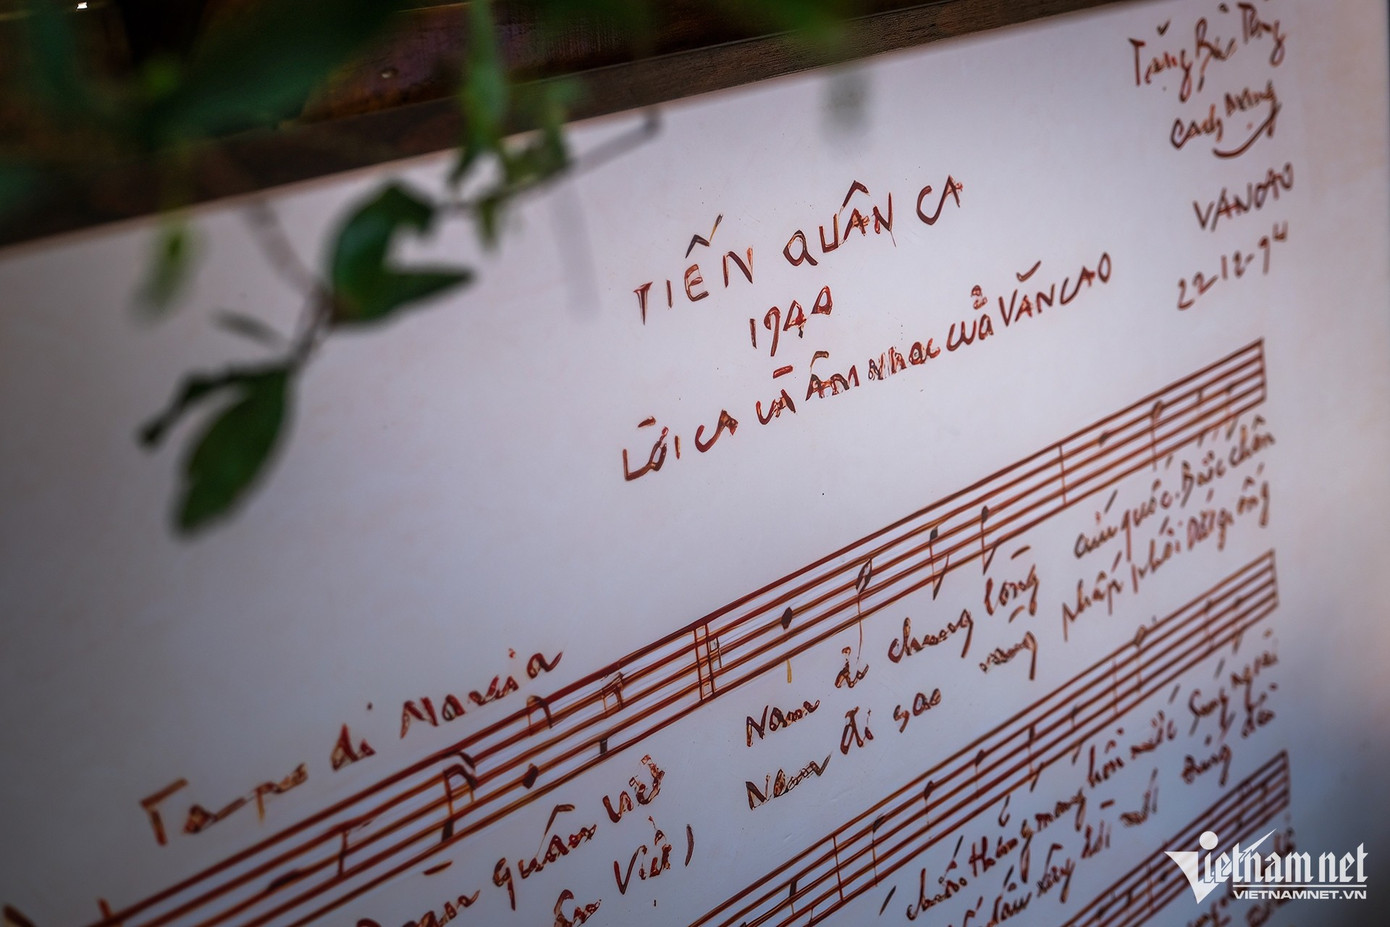 Tặng Bảo Tàng
Cách Mạng
VĂN CAO
22-12-94
TIẾN QUÂN CA
1944
LỜI CA VÀ ÂM NHẠC CỦA VĂN CAO
Tempo di Marcia
quân Việt Nam đi chung lòng cứu quốc. Bước chân
Việt Nam đi sao vàng phấp phới Dắt giống
chiến thắng mang hồn nước Súng ngoài
xây đời
Vietnamnet
VIETNAMNET.VN